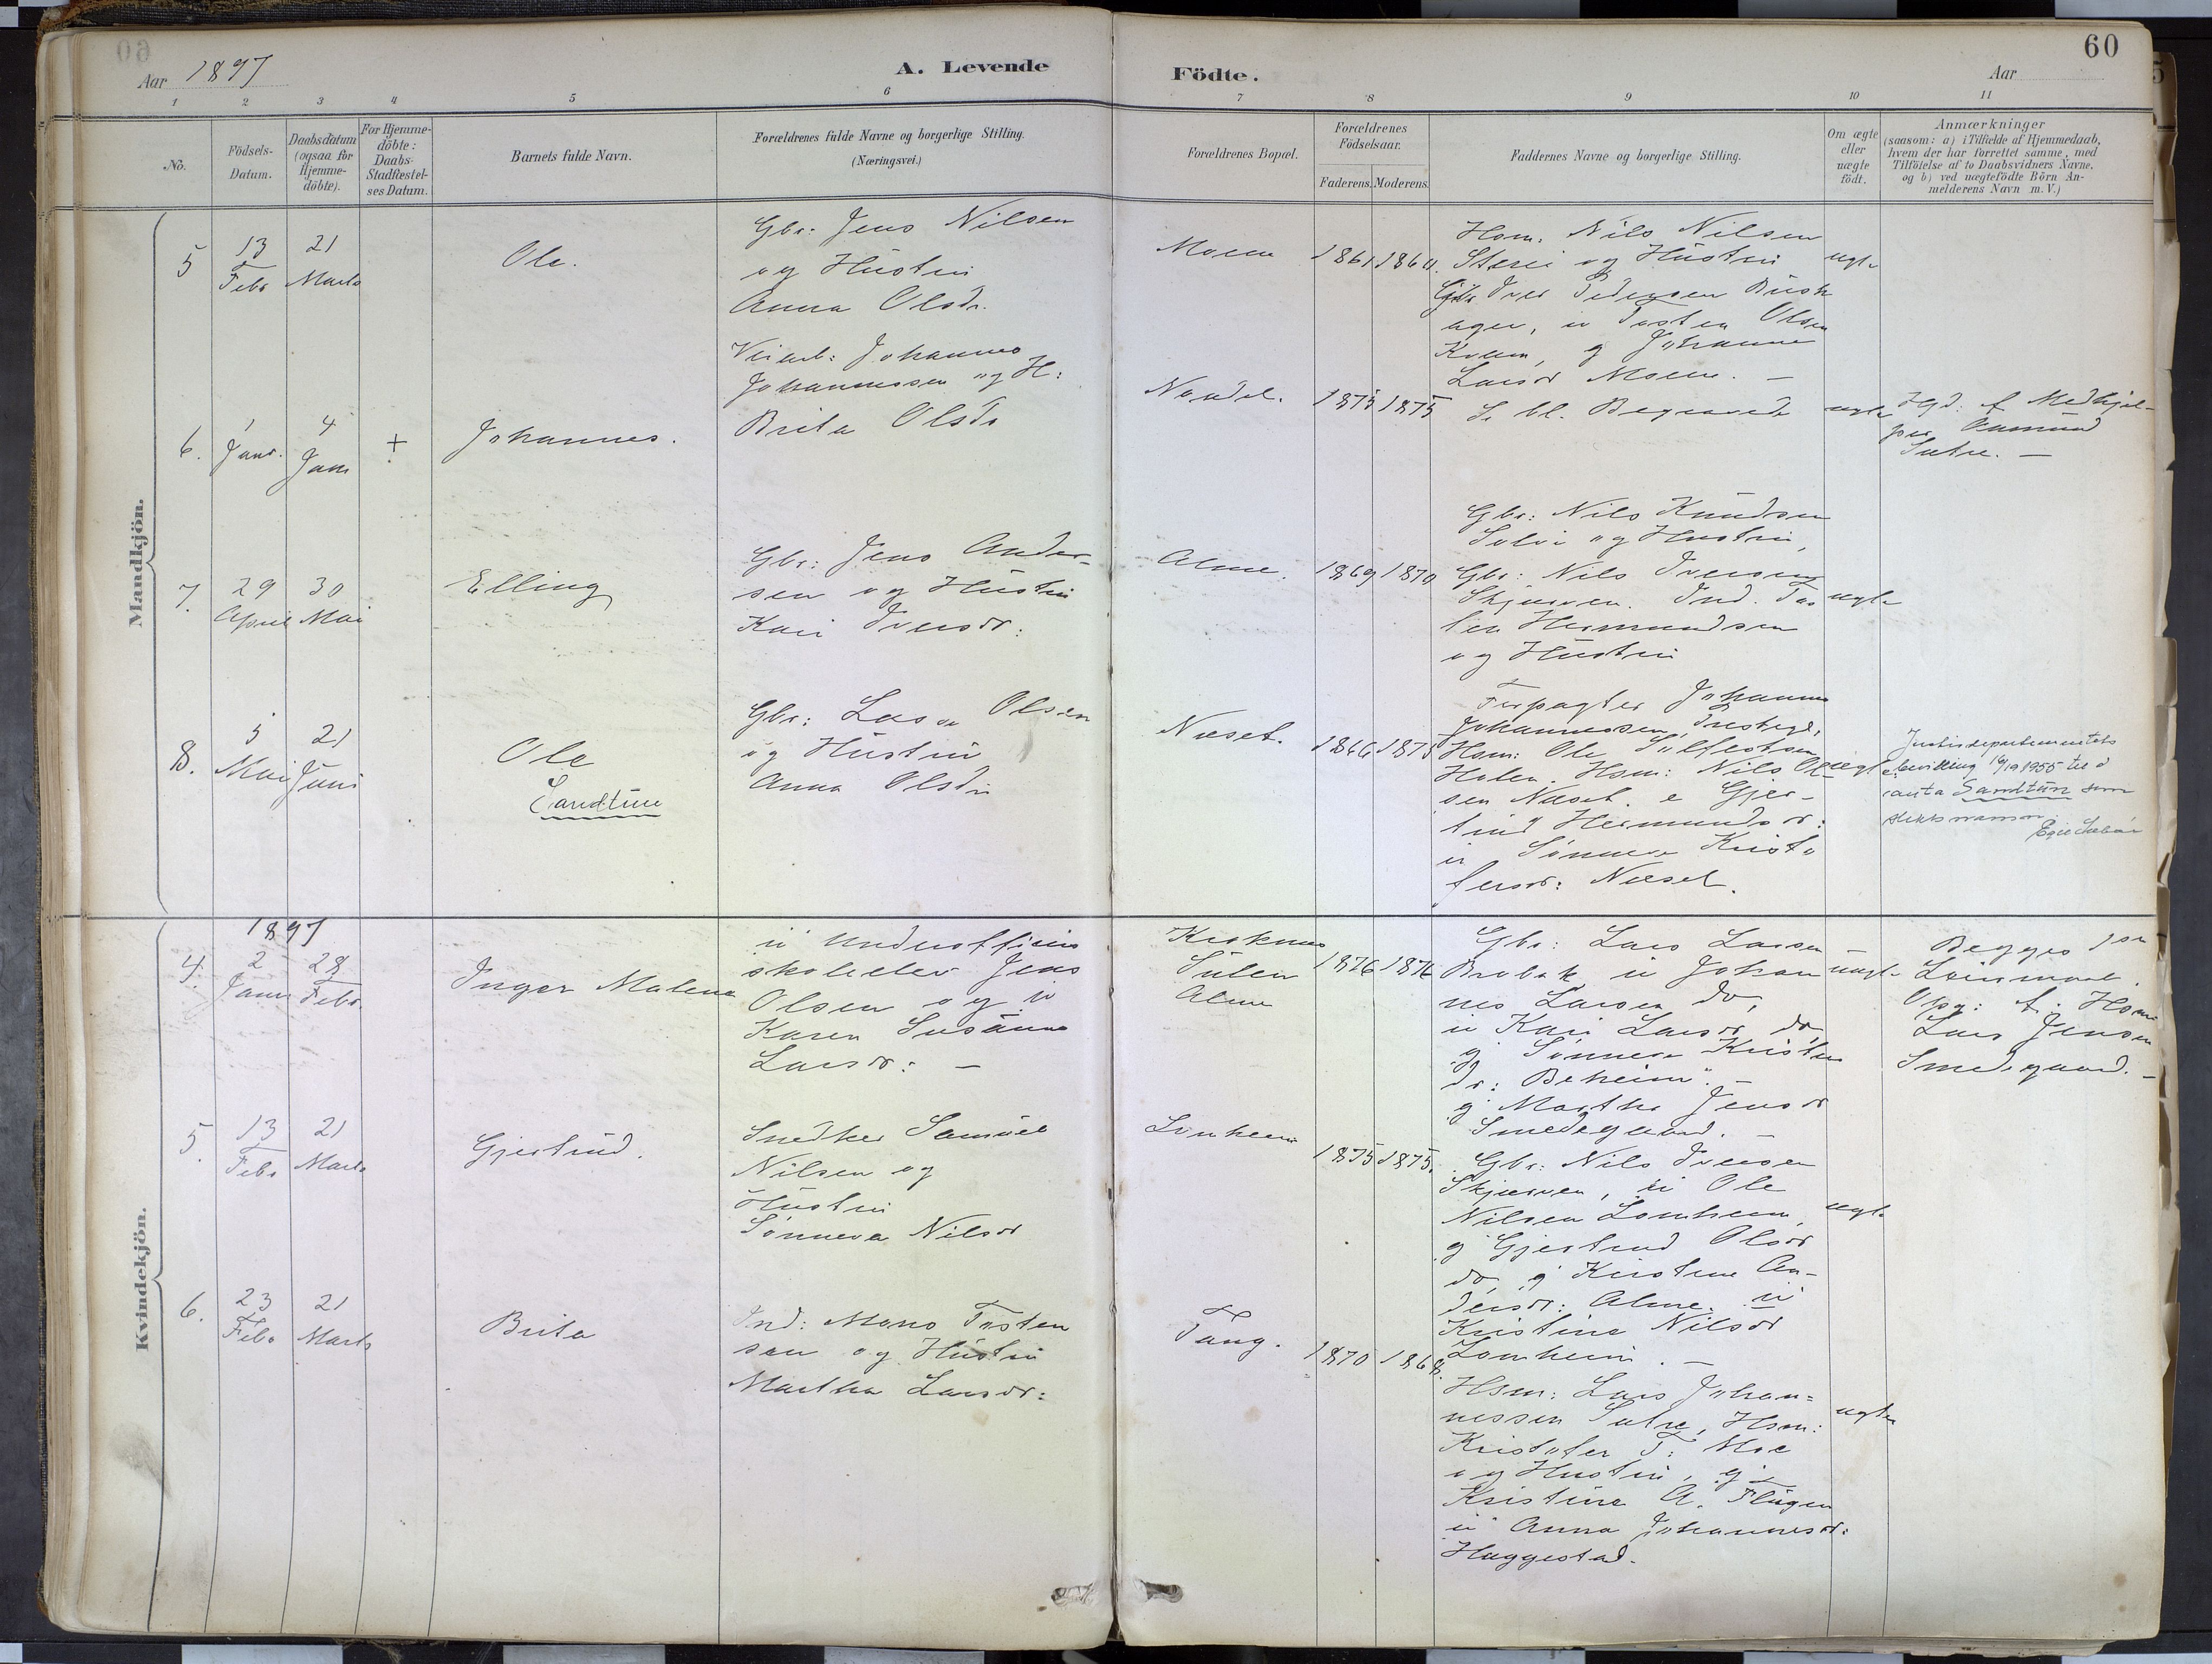 60
Aar 1897
A. Levende
Födte.
Aar
60
1 2 3 4 5 6 7 8 9 10 11
No.
Födsels-
Datum.
Daabsdatum
(ogsaa for
Hjemme-
döbte).
For Hjemme-
döbte:
Daabs-
Stadfæstel-
ses Datum.
Barnets fulde Navn.
Forældrenes fulde Navne og borgerlige Stilling.
(Næringsvei.)
Forældrenes Bopæl.
Forældrenes
Födselsaar.
Faderens. Moderens.
Faddernes Navne og borgerlige Stilling.
Om ægte
eller
uægte
födt.
Anmærkninger
(saasom: a) i Tilfælde af Hjemmedaab,
hvem der har forrettet samme, med
Tilföielse af to Daabsvidners Navne,
og b) ved uægtefödte Börn An-
melderens Navn m. V.)
Mandkjön.
5
13
Febr
21
Marts
Ole.
Gbr: Jens Nilsen
og Hustru
Anna Olsdr.
Moene
1861
Hsm. Nils Nilsen
og Hustru
Gbr Iver Pedersen Busk
ager, u Tosten Olsen
Kvam, g Johanne
Larsdr Moene. —
ægte
6.
1
Janr.
4
Janr
+
Johannes.
Veiarb: Johannes
Johannessen og H:
Brita Olsdr
Nondal.
1875 1875
S. bl. Begravede
ægte
Hjd: f Medhjel-
per Aamund
Sætre. —
7.
29
April
30
Mai
Elling
Gbr: Jens Ander-
sen og Hustru
Kari Iversdr:
Alme.
1869 1870
Gbr: Nils Knudsen
Solvi og Hustru,
Gbr: Nils Iversen
Skjærven. Ind. Tos
ten Hermundsen
og Hustru
ægte
8.
5
Mai
21
Juni
Ole
Sandtun
Gbr: Lasse Olsen
og Hustru
Anna Olsdr
Næset.
1866 1875
Forpagter Johannes
Johannessen
Hsm: Ole
Holen. Hsm: Nils Ol-
sen Næset. e Gjer-
trud Hermundsdr:
u Sønneva Kristo
fersdr: Næset.
ægte
Justisdepartementets
bevilling 16/19 1955 til å
anta Sandtun som
slektsnamn
Kvindekjön.
1897
4.
2
Janr
28
Febr.
Inger Malena
u Underoffisers
skoleelev Jens
Olsen og u
Karen Susanna
Larsdr: —
Kroknes
Sulen
Alme
1876 1876
Gbr: Lars Larsen —
Brobak u Johan
nes Larsen do,
u Kari Larsdr do
g Sønneva Kristens
dr: Beheim". —
g Martha Jensdr
Smedegaard. —
uægte
Begges 1ste
Leiermaal.
Opg: f. Hsm
Lars Jensen
Smedegaard. —
5.
13
Febr
21
Marts
Gjertrud.
Snedker Samuel
Nilsen og
Hustru
Sønneva Nilsdr
Lomheim
1875 1875.
Gbr: Nils Iversen
Skjærven, u Ole
Nilsen Lomheim,
g Gjertrud Olsdr
do, g Kirstine An-
dersdr: Alme. u
Kristina Nilsdr
Lomheim. —
ægte
6.
23
Febr
21
Marts
Brita
Ind: Mons Tosten
sen og Hustru
Martha Larsdr:
Tang.
1870 1868
Hsm: Lars Johan-
nessen Sætre, Hsm:
Kristofer T: Moe
og Hustru, g
Kristine A. Flugen
u Anna Johannesdr:
Huggestad.
ægte